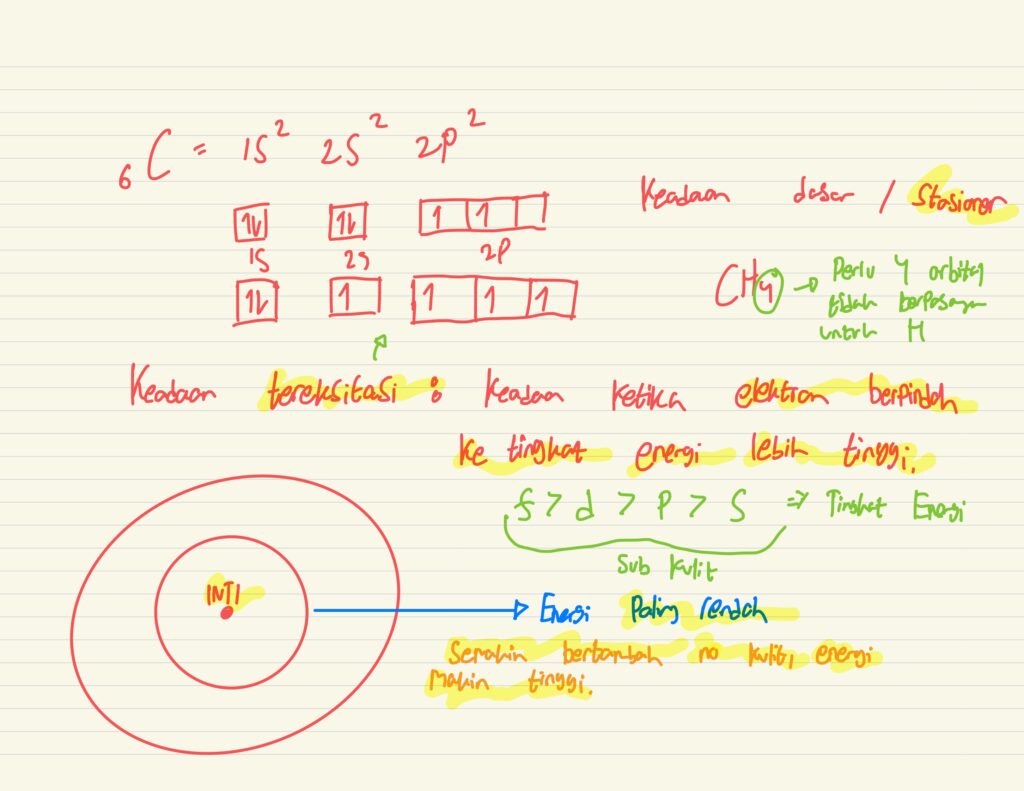 ₆C = 1S² 2S² 2P²
Keadaan dasar / Stasioner
1L 1L 1 1
1S 2S 2P
1L 1 1 1 1
CH4 → Perlu 4 orbital
tidak berpasangan
untuk H
Keadaan tereksitasi : Keadaan ketika elektron berpindah
ke tingkat energi lebih tinggi.
f > d > P > S => Tingkat Energi
Sub kulit
INTI
Energi Paling rendah
Semakin bertambah no kulit, energi
Makin tinggi.